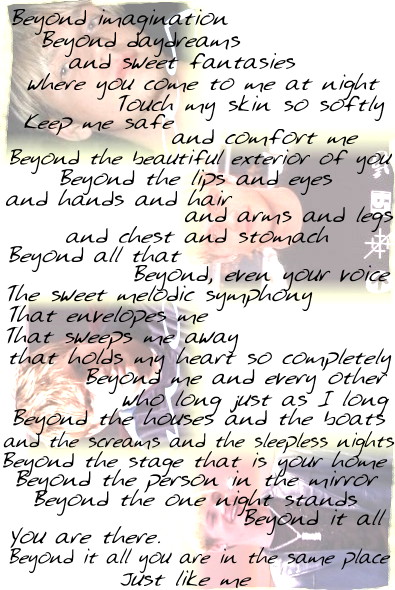 Beyond imagination
Beyond daydreams
and sweet fantasies
where you come to me at night
Touch my skin so softly
Keep me safe
and comfort me
Beyond the beautiful exterior of you
Beyond the lips and eyes
and hands and hair
and arms and legs
and chest and stomach
Beyond all that
Beyond, even your voice
The sweet melodic symphony
That envelopes me
That sweeps me away
that holds my heart so completely
Beyond me and every other
who long just as I long
Beyond the houses and the boats
and the screams and the sleepless nights
Beyond the stage that is your home
Beyond the person in the mirror
Beyond the one night stands
Beyond it all
You are there.
Beyond it all you are in the same place
Just like me